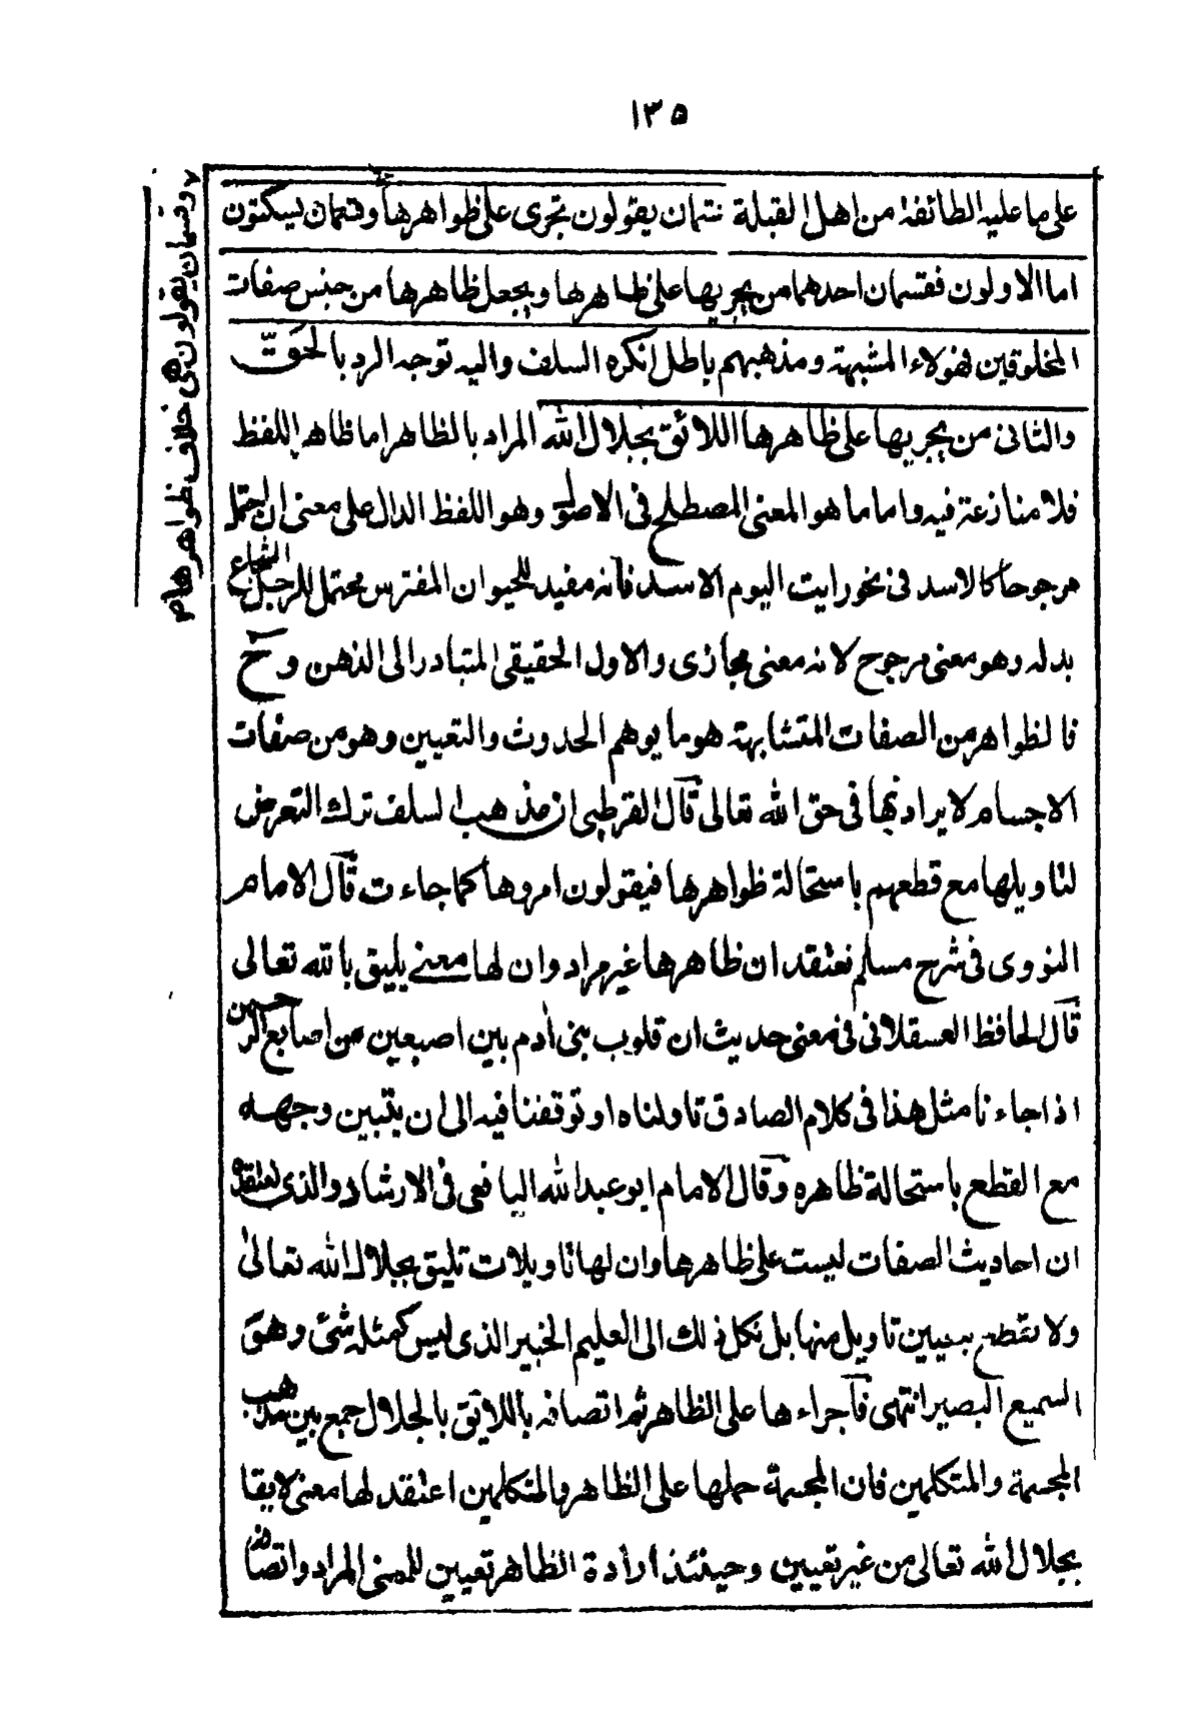 ١٣٥
على ما عليه الطائفة من اهل القبلة قسمان يقولون تجرى على ظواهرها وقسمان يسكتون
اما الاولون فقسمان احدهما من يجريها على ظاهرها ويجعل ظاهرها من جنس صفات
المخلوقين فهولاء المشبهة ومذهبهم باطل انكره السلف واليه توجه الرد بالحق
والثانى من يجريها على ظاهرها اللائق بجلال الله المراد بالظاهر اما ظاهر اللفظ
فلا منازعة فيه واما ما هو المعنى المصطلح فى الاصول وهو اللفظ الدال على معنى ان احتمل
مرجوحا كالاسد فى نحو رايت اليوم الاسد فانه مفيد للحيوان المفترس محتمل للرجل الشجاع
بدله وهو معنى مرجوح لانه معنى مجازى والاول الحقيقى المتبادر الى الذهن وح
فالظواهر من الصفات المتشابهة هو ما يوهم الحدوث والتعيين وهو من صفات
الاجسام لا يراد بها فى حق الله تعالى قال القرطبى ان مذهب السلف ترك التعرض
لتاويلها مع قطعهم باستحالة ظواهرها فيقولون امروها كما جاءت قال الامام
النووى فى شرح مسلم نعتقد ان ظاهرها غير مراد وان لها معنے يليق بالله تعالى
قال الحافظ العسقلانى فى معنى حديث ان قلوب بنى ادم بين اصبعين من اصابع الرحمن
اذا جاءنا مثل هذا فى كلام الصادق تاولناه او توقفنا فيه الى ان يتبين وجهه
مع القطع باستحالة ظاهره وقال الامام ابو عبد الله اليافعى فى الارشاد والذى نعتقده
ان احاديث الصفات ليست على ظاهرها وان لها تاويلات تليق بجلال الله تعالى
ولا نقطع بتعيين تاويل منها بل نكل ذلك الى العليم الخبير الذى ليس كمثله شئ وهو
السميع البصير انتهى فاجراءها على الظاهر ثم اتصافه باللائق بالجلال جمع بين مذهب
المجسمة والمتكلمين فان المجسمة حملها على الظاهر والمتكلمين اعتقد لها معنى لايقا
بجلال الله تعالى من غير تعيين وحينئذ ارادة الظاهر تعيين للمعنى المراد واتصافه
وقسمان يقولون هى خلاف ظواهرها م